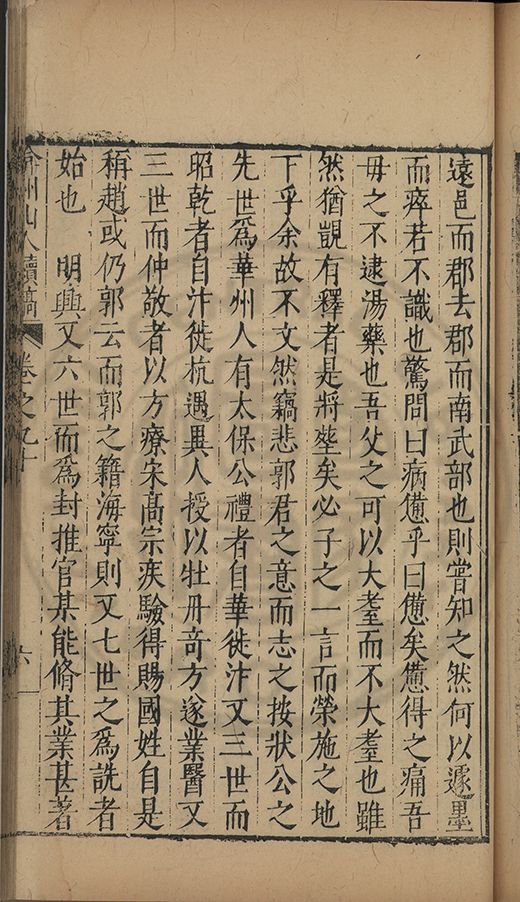 遠邑而郡去郡而南武部也則嘗知之然何以遽墨
而瘁若不識也驚問曰病憊乎曰憊矣憊得之痛吾
毋之不逮湯藥也吾父之可以大耋而不大耋也雖
然猶覬有釋者是將塟矣必子之一言而榮施之地
下乎余故不文然竊悲郭君之意而志之按狀公之
先世爲華州人有太保公禮者自華徙汴又三世而
昭乾者自汴徙杭遇異人授以牡丹奇方遂業醫又
三世而仲敬者以方療宋高宗疾驗得賜國姓自是
稱趙或仍郭云而郭之籍海寧則又七世之爲詵者
始也　明興又六世而爲封推官某能脩其業甚著
弇州山人續稿　卷之九十　六